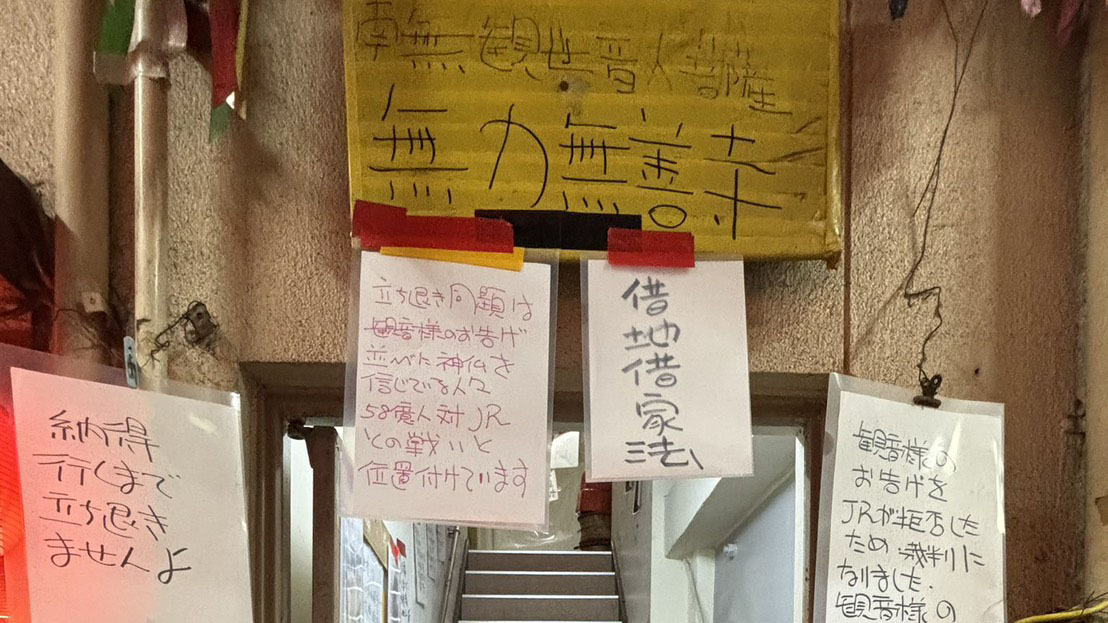 南無観世音人菩薩
無力無善寺
立ち退き問題は
観音様のお告げ
並べた神仏を
信じている人々
58億人対JR
との戦いと
位置付けています
借地借家法
納得
行くまで
立ち退き
ませんよ
観音様の
お告げを
JRが拒否した
ため裁判に
なりました.
観音様の